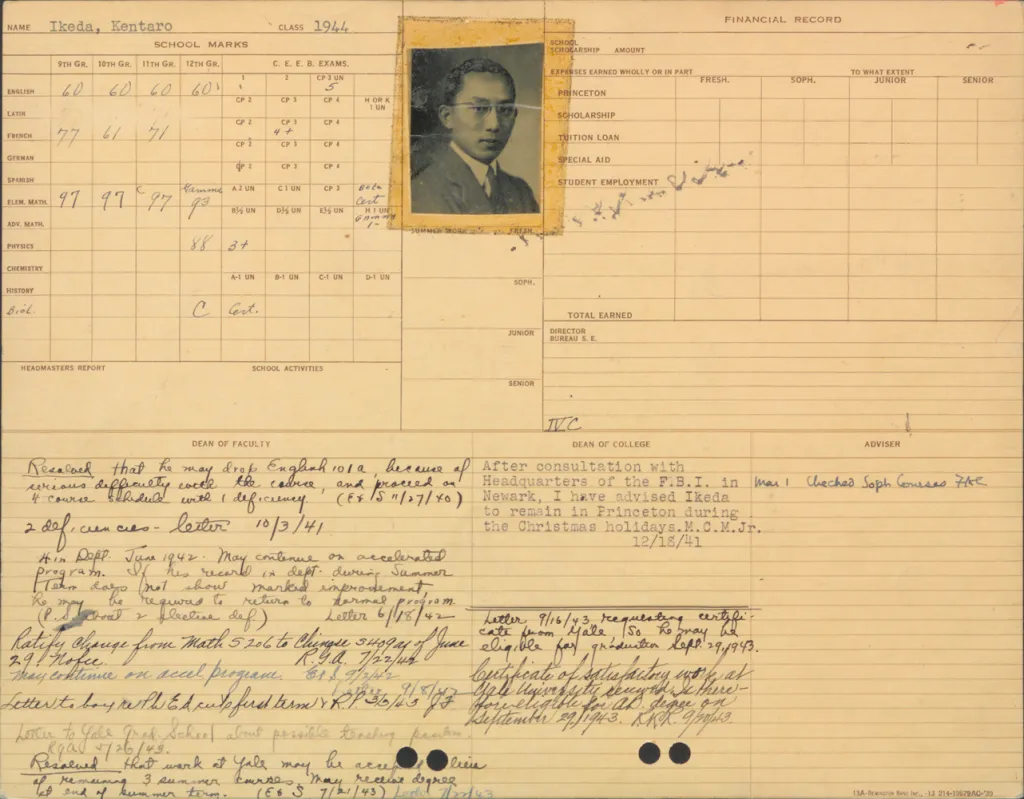 NAME Ikeda, Kentaro CLASS 1944
SCHOOL MARKS
9TH GR. 10TH GR. 11TH GR. 12TH GR. C. E. E. B. EXAMS.
1 2 CP 3 UN
ENGLISH 60 60 60 60 5
CP 2 CP 3 CP 4 H OR K 1 UN
LATIN
CP 2 CP 3 CP 4
FRENCH 77 61 71 4+
CP 2 CP 3 CP 4
GERMAN
CP 2 CP 3 CP 4
SPANISH
ELEM. MATH. 97 97 97 Gamma 93 A 2 UN C 1 UN CP 3 Beta Cert
B½ UN D½ UN E½ UN H 1 UN
ADV. MATH. Gamma 1-
PHYSICS 88 3+
CHEMISTRY
A-1 UN B-1 UN C-1 UN D-1 UN
HISTORY
Biol. C Cert.
HEADMASTERS REPORT SCHOOL ACTIVITIES
SUMMER WORK FRESH.
SOPH.
JUNIOR
SENIOR
FINANCIAL RECORD
SCHOOL
SCHOLARSHIP AMOUNT
EXPENSES EARNED WHOLLY OR IN PART TO WHAT EXTENT
FRESH. SOPH. JUNIOR SENIOR
PRINCETON
SCHOLARSHIP
TUITION LOAN
SPECIAL AID
STUDENT EMPLOYMENT
TOTAL EARNED
DIRECTOR
BUREAU S. E.
IV C
DEAN OF FACULTY
Resolved that he may drop English 101a, because of
serious difficulty with the course, and proceed on
4 course schedule with 1 deficiency. (E & S 11/27/40)
2 deficiencies - letter 10/3/41
4 in Dept. June 1942. May continue on accelerated
program. If his record in dept. during Summer
Term does not show marked improvement,
he may be required to return to normal program.
(P.S. about 2 elective def.) Letter 6/18/42
Ratify change from Math S 206 to Chinese S 409 as of June
29. Notice R.G.A. 7/22/42
May continue on accel program. E & S 9/2/42
Letter 9/8/42
Letter to boy re Ph Ed cuts first term R P 3/3/43 JF
Letter to Yale Grad. School about possible teaching position.
RGA 5/26/43.
Resolved that work at Yale may be accepted in lieu
of remaining 3 summer courses. May receive degree
at end of summer term. (E & S 7/21/43) Letter 7/22/43
DEAN OF COLLEGE
After consultation with
Headquarters of the F.B.I. in
Newark, I have advised Ikeda
to remain in Princeton during
the Christmas holidays. M.C.M.Jr.
12/18/41
Letter 9/16/43 requesting certifi-
cate from Yale, so he may be
eligible for graduation Sept. 29, 1943.
Certificate of satisfactory work at
Yale University received, is there-
fore eligible for AB degree on
September 29, 1943. 9/20/43.
ADVISER
Mar 1 Checked Soph Courses